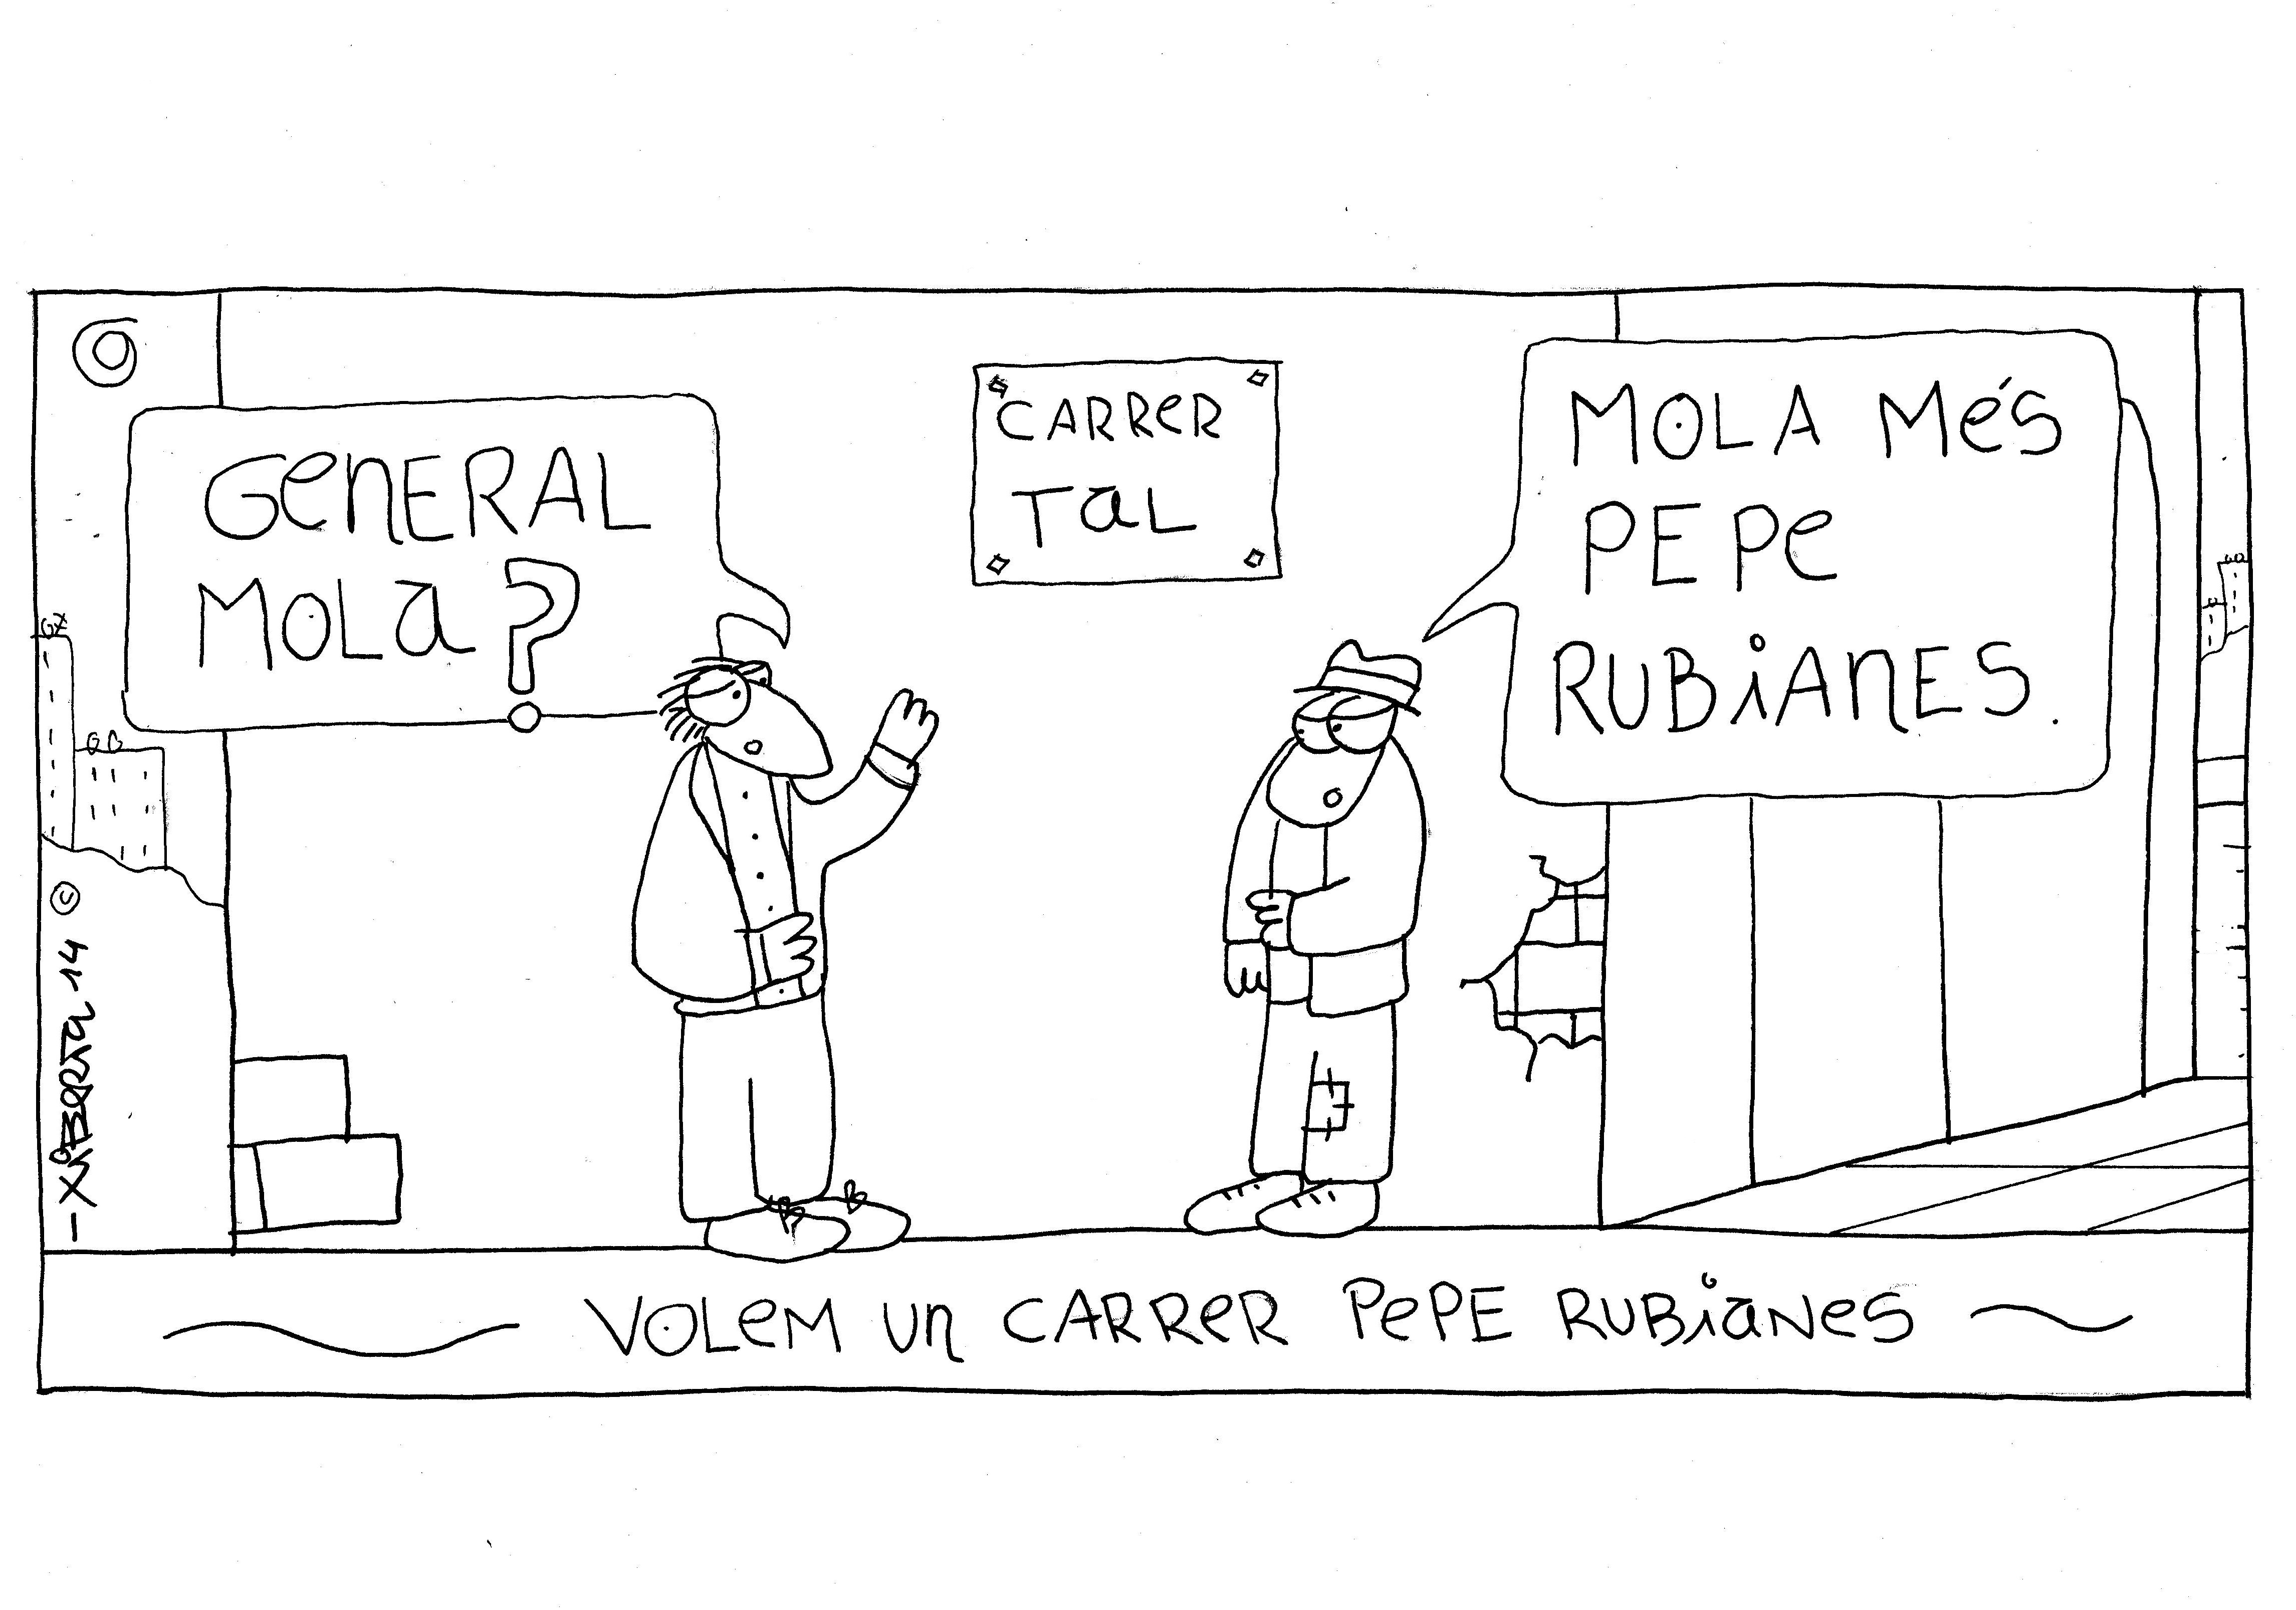 GENERAL
MOLA?
CARRER
TAL
MOLA MÉS
PEPE
RUBIANES.
VOLEM UN CARRER PEPE RUBIANES
© -XIBERTA 14